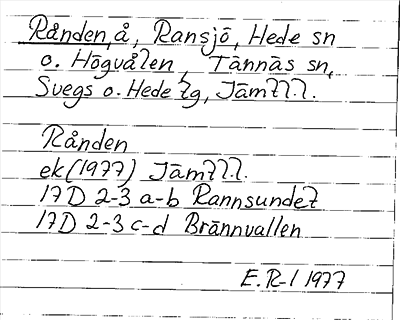 Rånden, å, Ransjö, Hede sn
o. Högvålen, Tännäs sn,
Svegs o. Hede tg, Jämtl l.
Rånden
ek (1977) Jämtl.l.
17D 2-3 a-b Rannsundet
17D 2-3 c-d Brännvallen
E.R-l 1977